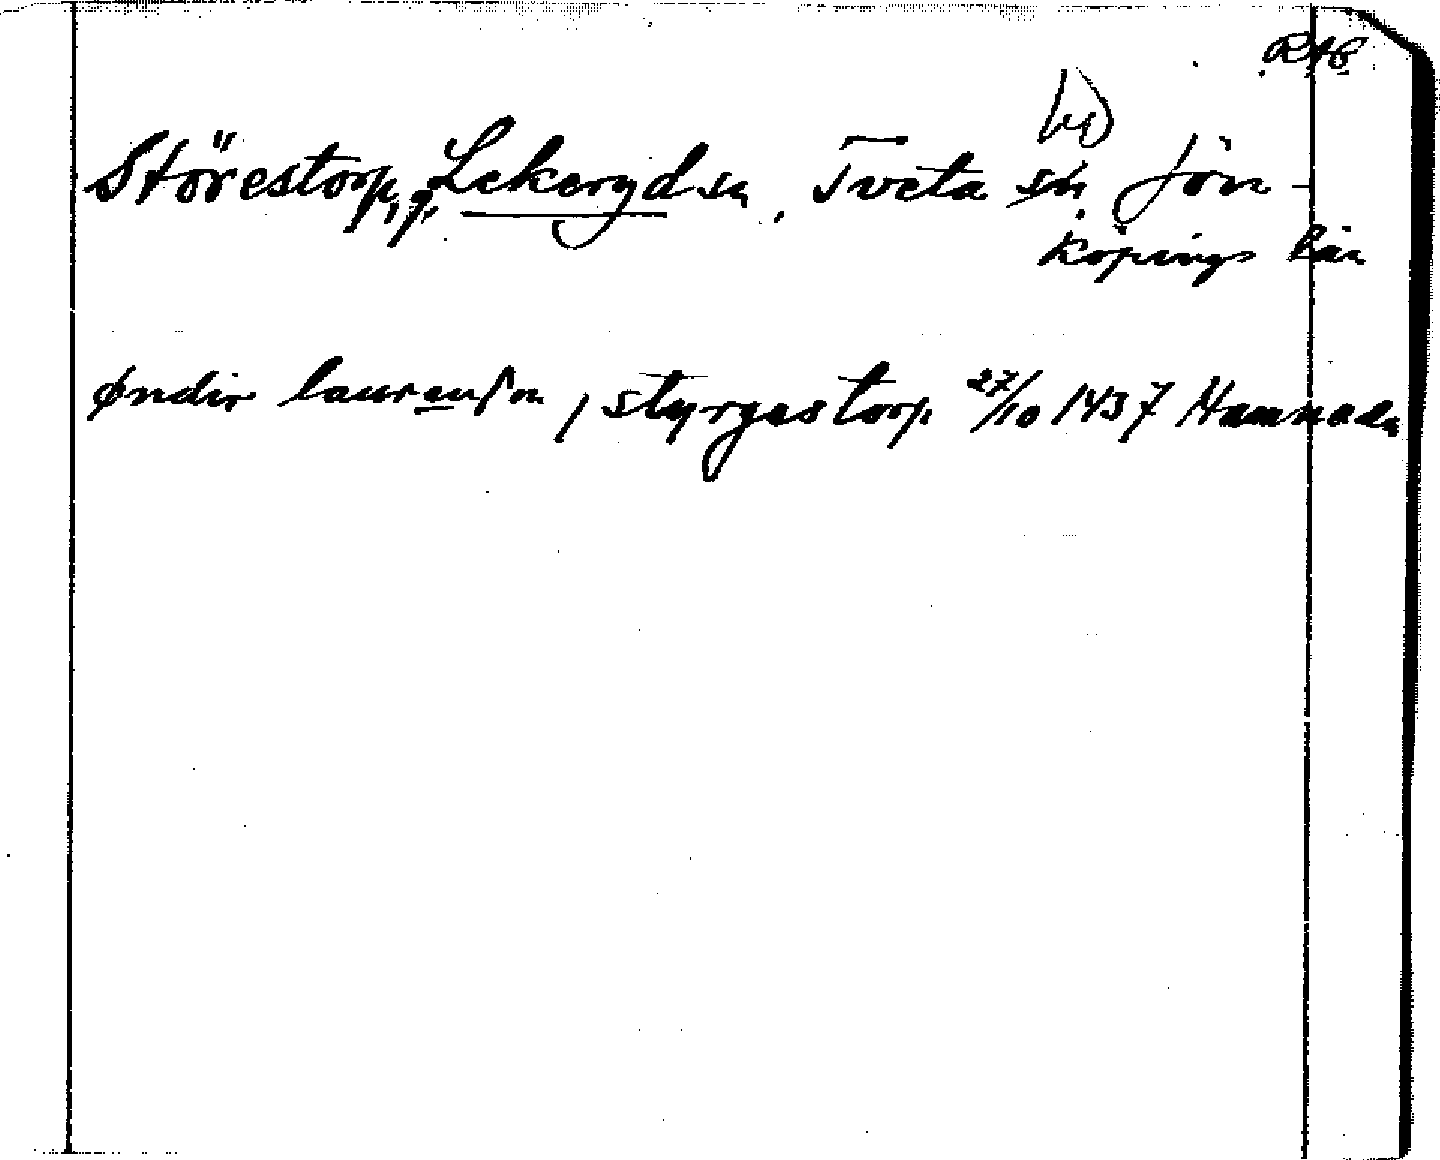 RAP
hd
Störestorp, g, Lekeryd sn, Tveta sn Jön-
köpings län
øndir laurensson i styrgestorp 27/10 1437 Hamnada